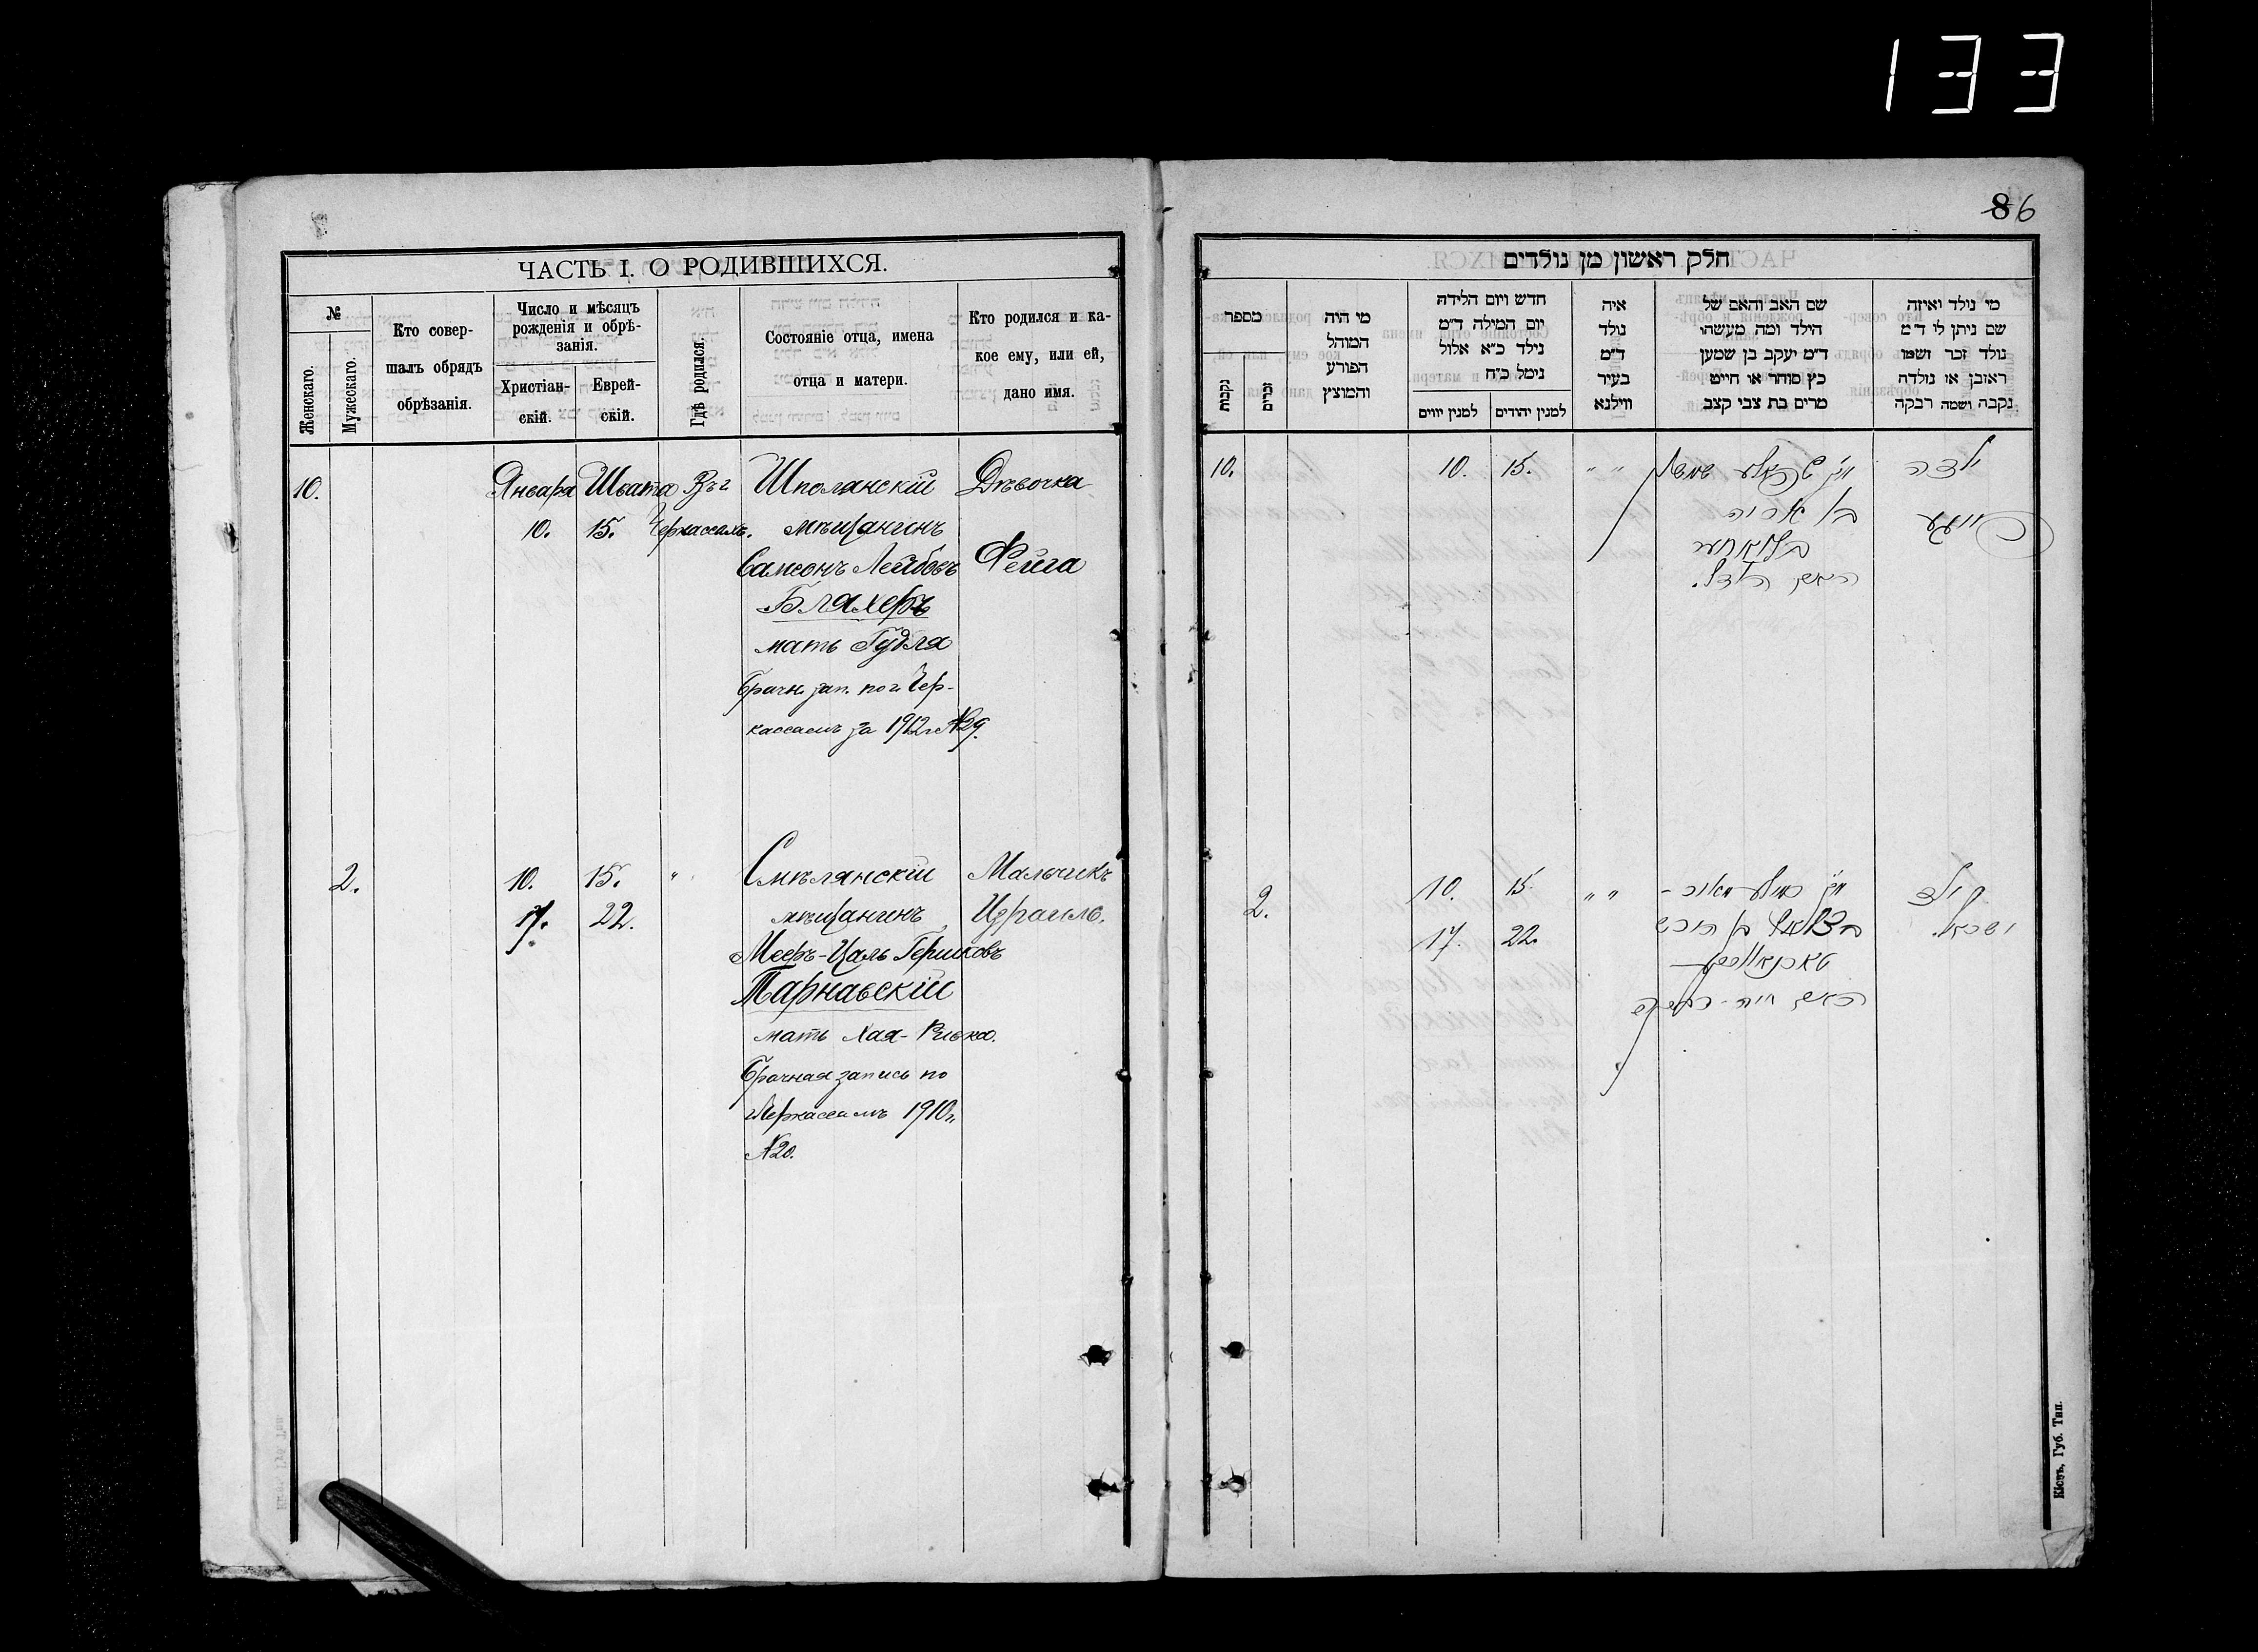 133
86
ЧАСТЬ I. О РОДИВШИХСЯ.
№
Женскаго.
Мужескаго.
Кто совер-
шалъ обрядъ
обрѣзанія.
Число и мѣсяцъ
рожденія и обрѣ-
занія.
Христіан-
скій.
Еврей-
скій.
Гдѣ родился.
Состояніе отца, имена
отца и матери.
Кто родился и ка-
кое ему, или ей,
дано имя.
10.
Января Швата Въ г
10. 15. Черкассахъ.
Шполянскій
мѣщанинъ
Самсонъ Лейбовъ
Бляхеръ
мать Гудля
Брачн. зап. по г. Чер-
кассамъ за 1912 г. №29.
Дѣвочка
Фейга
2.
10. 15. "
17. 22.
Смѣлянскій
мѣщанинъ
Мееръ-Цаль Гершковъ
Тарнавскій
мать Хая-Ривка.
Брачная запись по
г. Черкассамъ 1910 г.
№20.
Мальчикъ
Израиль.
חלק ראשון מן נולדים
מספר
נקבות
זכרים
מי היה
המוהל
הפורע
והמוצץ
חדש ויום הלידה
יום המילה ד״מ
נילד כ״א אלול
נימל כ״ח
למנין יווים
למנין יהודים
איה
נולד
ד״מ
בעיר
ווילנא
שם האב והאם של
הילד ומה מעשהו
ד״מ יעקב בן שמען
כץ סוחר או חייט
מרים בת צבי קצב
מי נולד ואיזה
שם ניתן לו ד״מ
נולד זכר ושמו
ראובן או נולדה
נקבה ושמה רבקה
10.
10. 15. " "
בן אריה
בלאכער
ילדה
פייגע
2.
10. 15. " "
17. 22.
בצלאל בן הירש
טארנאווסקי
ילד
ישראל.
Кіевъ, Губ. Тип.